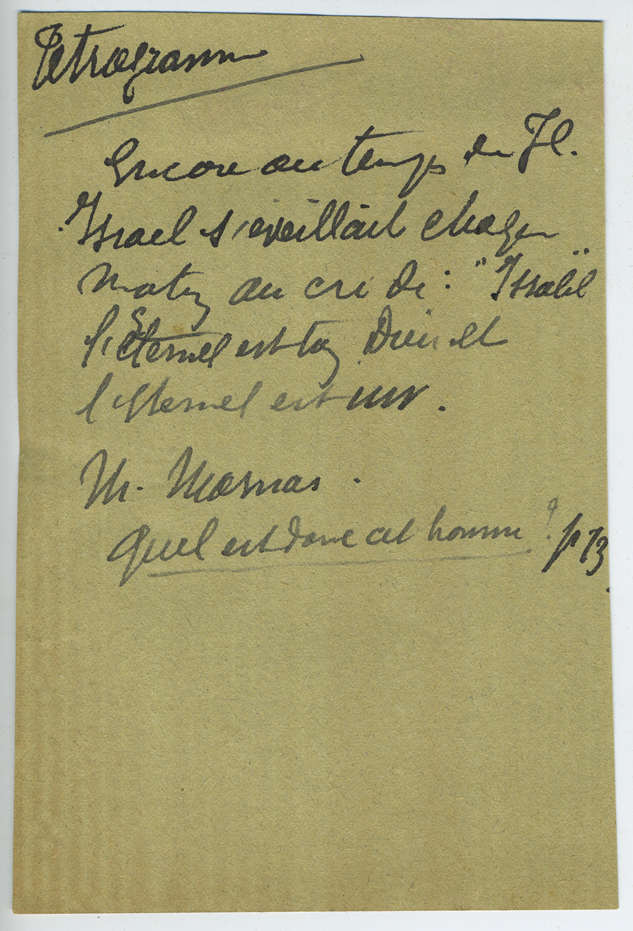 Tetragramm
Encore au temps de Jl.
Israel s'éveillait chaque
matin au cri de : "Israël
l'Éternel est ton Dieu et
l'Eternel est un.
M. Mornas.
Quel est donc cet homme? p 73